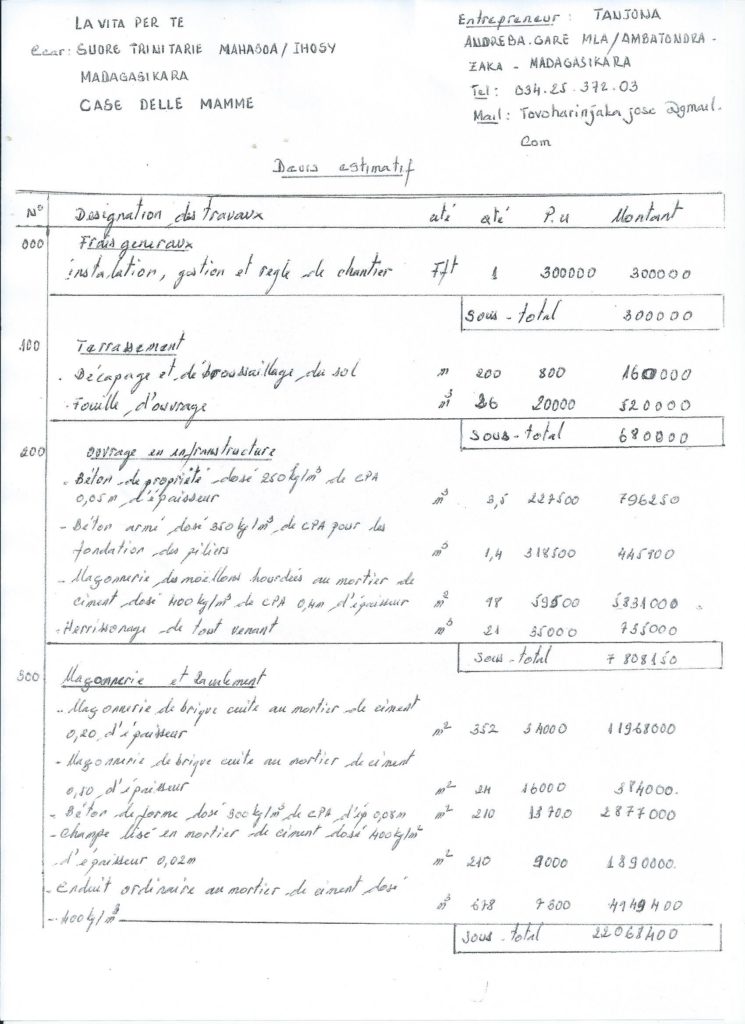 LA VITA PER TE
Ccar: SUORE TRINITARIE MAHASOA / IHOSY
MADAGASIKARA
CASE DELLE MAMME
Entrepreneur : TANJONA
ANDREBA.GARE MLA/AMBATONDRA-
ZAKA - MADAGASIKARA
Tel : 034.25.372.03
Mail : Tovoharinjaka jose @gmail.
Com
Devis estimatif
N° Designation des travaux uté qté P.U Montant
000 Frais generaux
instalation, gestion et regle de chantier Fft 1 300000 300000
Sous-total 300000
100 Terrassement
. Décapage et débroussaillage du sol m 200 800 160000
- Fouille d'ouvrage m³ 26 20000 520000
Sous-total 680000
200 ouvrage en infranstructure
- Béton de propriété dosé 250kg/m³ de CPA
0,05m d'épaisseur m³ 3,5 227500 796250
- Béton armé dosé 350kg/m³ de CPA pour les
fondation des piliers m³ 1,4 318500 445900
- Maçonnerie des moëllons hourdées au mortier de
ciment dosé 400kg/m³ de CPA 0,4m d'épaisseur m² 98 59500 5831000
- Herrissonage de tout venant m³ 21 35000 735000
Sous-total 7808150
300 Maçonnerie et Ravalement
- Maçonnerie de brique cuite au mortier de ciment
0,20 d'épaisseur m² 352 34000 11968000
- Maçonnerie de brique cuite au mortier de ciment
0,10 d'épaisseur m² 24 16000 384000.
- Béton de forme dosé 300kg/m³ de CPA d'ép 0,08m m² 210 13700 2877000
- Champe lisé en mortier de ciment dosé 400kg/m²
d'épaisseur 0,02m m² 210 9000 1890000.
- Enduit ordinaire au mortier de ciment dosé
- 400kg/m³ m³ 678 7300 4949400
Sous-total 22068400